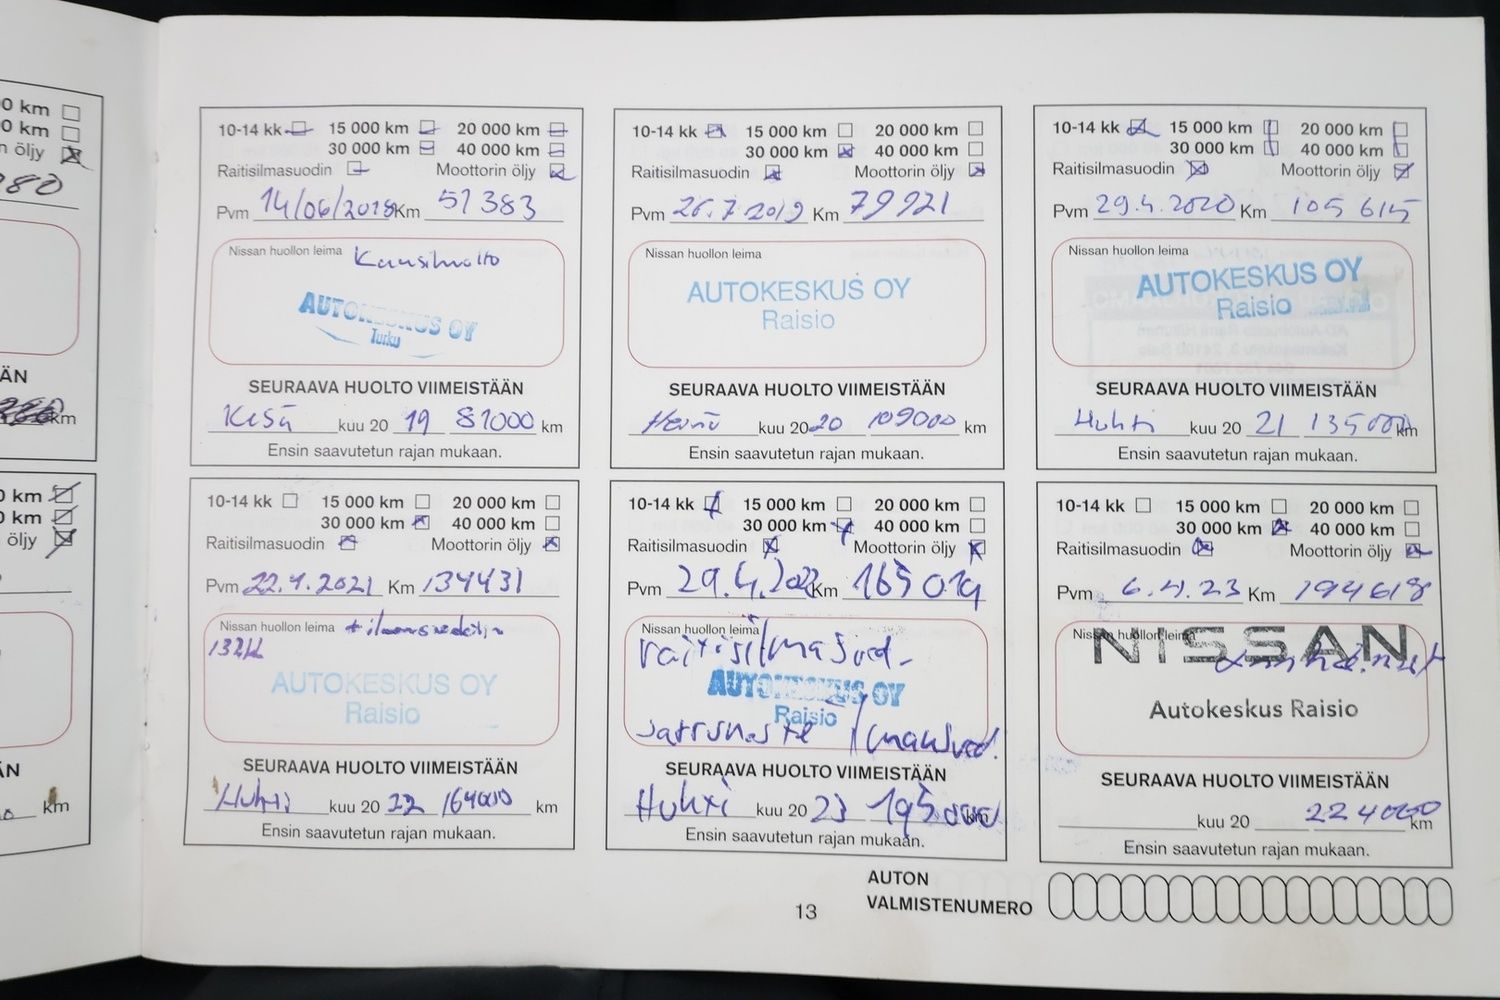 0 km
0 km
n öljy
ÄN
km
0 km
0 km
öljy
ÄN
km
10-14 kk 15 000 km 20 000 km
30 000 km 40 000 km
Raitisilmasuodin Moottorin öljy
Pvm 14/06/2018 Km 51 383
Nissan huollon leima
AUTOKESKUS OY
Turku
SEURAAVA HUOLTO VIIMEISTÄÄN
Kesä kuu 20 19 81000 km
Ensin saavutetun rajan mukaan.
10-14 kk 15 000 km 20 000 km
30 000 km 40 000 km
Raitisilmasuodin Moottorin öljy
Pvm 26.7.2019 Km 79921
Nissan huollon leima
AUTOKESKUS OY
Raisio
SEURAAVA HUOLTO VIIMEISTÄÄN
Heinä kuu 20 20 109000 km
Ensin saavutetun rajan mukaan.
10-14 kk 15 000 km 20 000 km
30 000 km 40 000 km
Raitisilmasuodin Moottorin öljy
Pvm 29.4.2020 Km 105 615
Nissan huollon leima
AUTOKESKUS OY
Raisio
SEURAAVA HUOLTO VIIMEISTÄÄN
Huhti kuu 20 21 135000 km
Ensin saavutetun rajan mukaan.
10-14 kk 15 000 km 20 000 km
30 000 km 40 000 km
Raitisilmasuodin Moottorin öljy
Pvm 22.4.2021 Km 134431
Nissan huollon leima
AUTOKESKUS OY
Raisio
SEURAAVA HUOLTO VIIMEISTÄÄN
Huhti kuu 20 22 164000 km
Ensin saavutetun rajan mukaan.
10-14 kk 15 000 km 20 000 km
30 000 km 40 000 km
Raitisilmasuodin Moottorin öljy
Pvm 29.4.2022 Km 165 019
Nissan huollon leima
raitisilmasuod.
AUTOKESKUS OY
Raisio
ilmansuod.
SEURAAVA HUOLTO VIIMEISTÄÄN
Huhti kuu 20 23 195000 km
Ensin saavutetun rajan mukaan.
10-14 kk 15 000 km 20 000 km
30 000 km 40 000 km
Raitisilmasuodin Moottorin öljy
Pvm 6.4.23 Km 194618
Nissan huollon leima
NISSAN
Autokeskus Raisio
SEURAAVA HUOLTO VIIMEISTÄÄN
kuu 20 224000 km
Ensin saavutetun rajan mukaan.
13
AUTON
VALMISTENUMERO